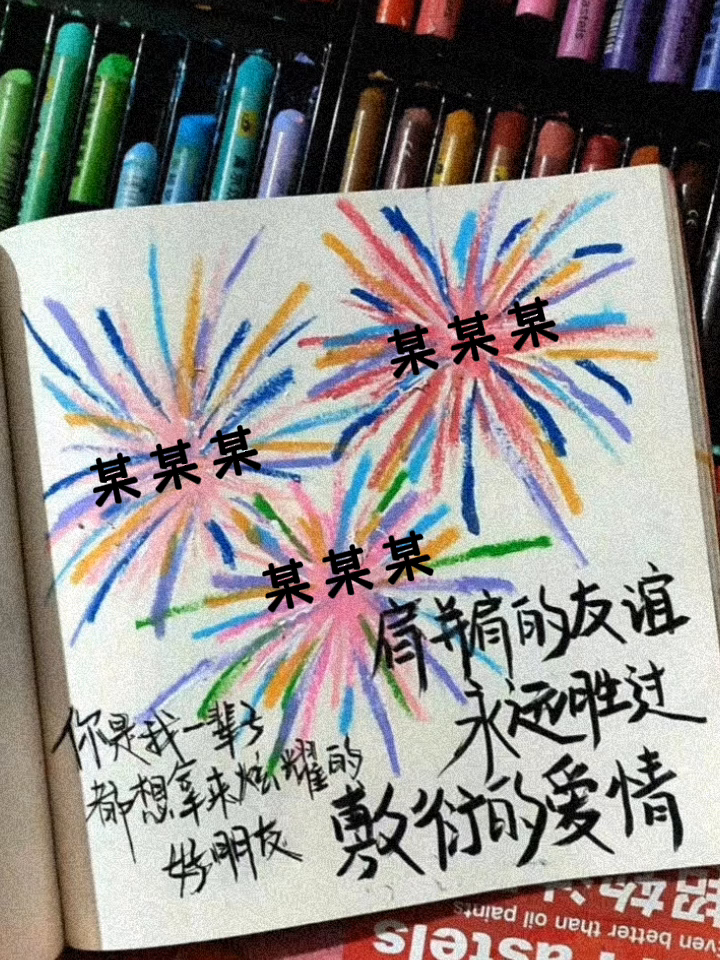 某某某
某某某
某某某
肩并肩的友谊
永远胜过
敷衍的爱情
你是我一辈子
都想拿来炫耀的
好朋友
even better than oil paints
Pastels